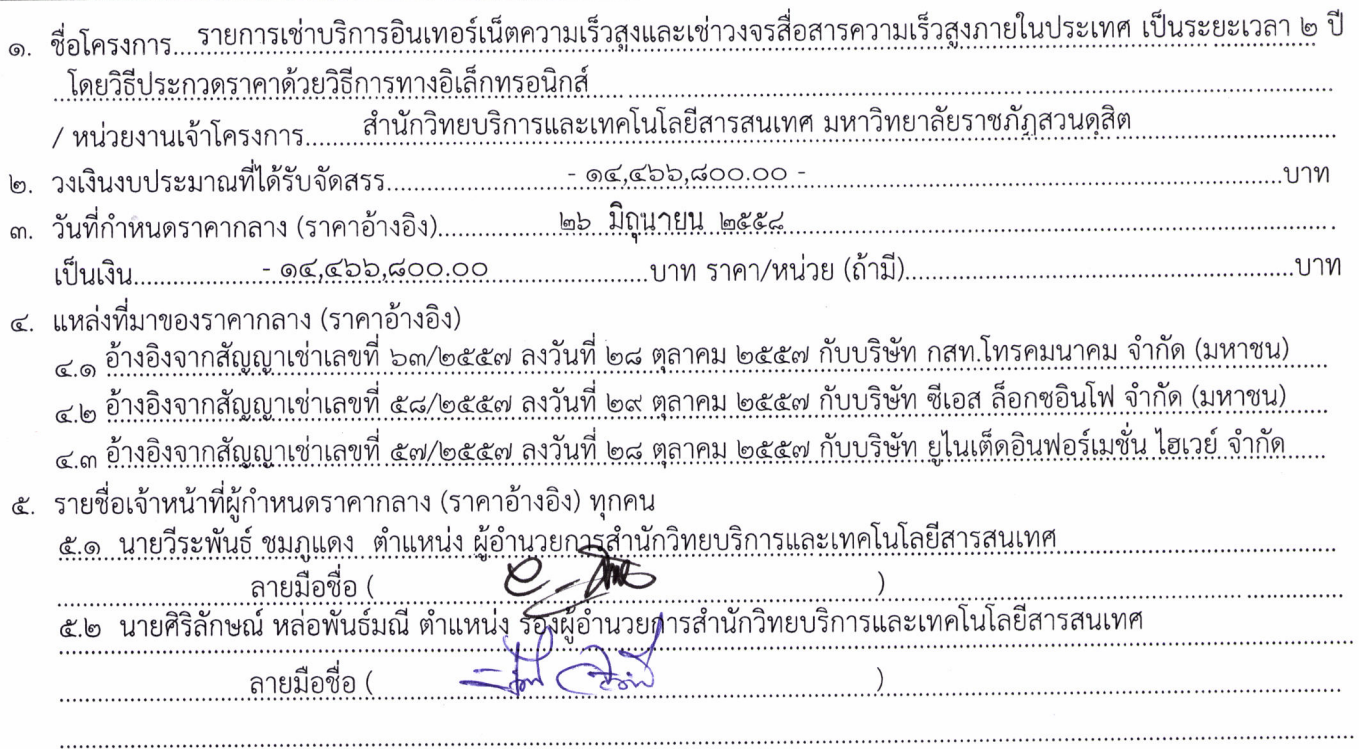 ๑. ชื่อโครงการ รายการเช่าบริการอินเทอร์เน็ตความเร็วสูงและเช่าวงจรสื่อสารความเร็วสูงภายในประเทศ เป็นระยะเวลา ๒ ปี
โดยวิธีประกวดราคาด้วยวิธีการทางอิเล็กทรอนิกส์
/ หน่วยงานเจ้าโครงการ สำนักวิทยบริการและเทคโนโลยีสารสนเทศ มหาวิทยาลัยราชภัฏสวนดุสิต
๒. วงเงินงบประมาณที่ได้รับจัดสรร - ๑๔,๔๖๖,๘๐๐.๐๐ - บาท
๓. วันที่กำหนดราคากลาง (ราคาอ้างอิง) ๒๖ มิถุนายน ๒๕๕๘
เป็นเงิน - ๑๔,๔๖๖,๘๐๐.๐๐ บาท ราคา/หน่วย (ถ้ามี) บาท
๔. แหล่งที่มาของราคากลาง (ราคาอ้างอิง)
๔.๑ อ้างอิงจากสัญญาเช่าเลขที่ ๖๓/๒๕๕๗ ลงวันที่ ๒๘ ตุลาคม ๒๕๕๗ กับบริษัท กสท.โทรคมนาคม จำกัด (มหาชน)
๔.๒ อ้างอิงจากสัญญาเช่าเลขที่ ๕๘/๒๕๕๗ ลงวันที่ ๒๙ ตุลาคม ๒๕๕๗ กับบริษัท ซีเอส ล็อกซอินโฟ จำกัด (มหาชน)
๔.๓ อ้างอิงจากสัญญาเช่าเลขที่ ๕๗/๒๕๕๗ ลงวันที่ ๒๘ ตุลาคม ๒๕๕๗ กับบริษัท ยูไนเต็ดอินฟอร์เมชั่น ไฮเวย์ จำกัด
๕. รายชื่อเจ้าหน้าที่ผู้กำหนดราคากลาง (ราคาอ้างอิง) ทุกคน
๕.๑ นายวีระพันธ์ ชมภูแดง ตำแหน่ง ผู้อำนวยการสำนักวิทยบริการและเทคโนโลยีสารสนเทศ
ลายมือชื่อ ( )
๕.๒ นายศิริลักษณ์ หล่อพันธ์มณี ตำแหน่ง รองผู้อำนวยการสำนักวิทยบริการและเทคโนโลยีสารสนเทศ
ลายมือชื่อ ( )